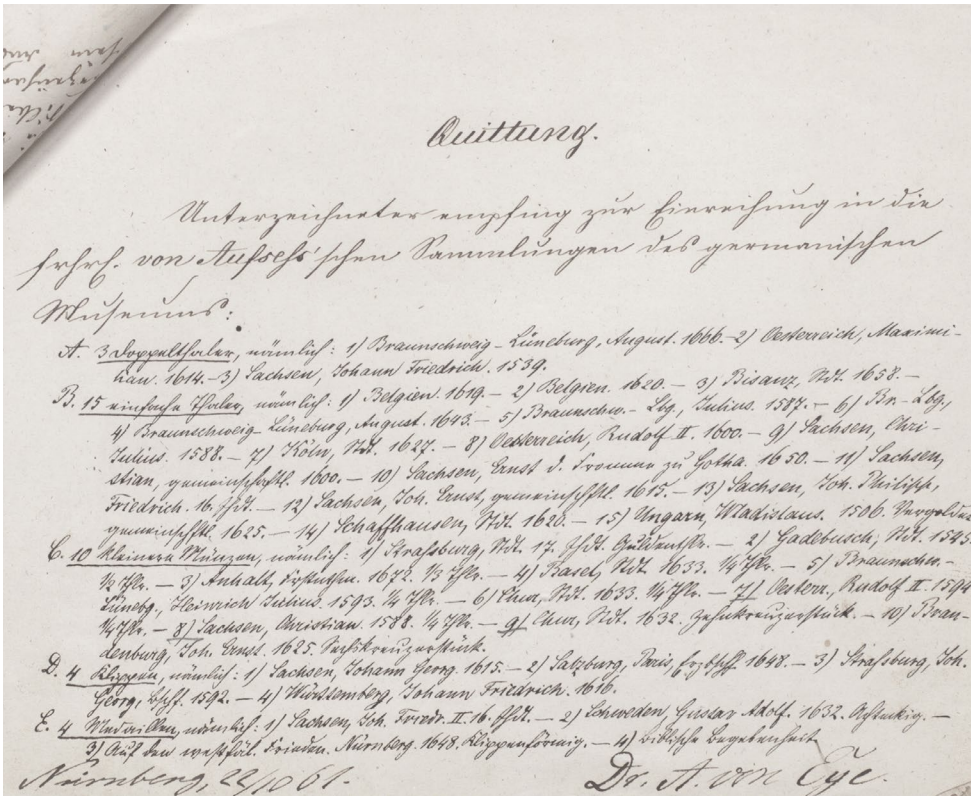 Quittung.
Unterzeichneter empfing zur Einreihung in die
frhrl. von Aufseß'schen Sammlungen des germanischen
Museums:
A. 3 Doppelthaler, nämlich: 1) Braunschweig-Lüneburg, August. 1666.- 2) Oesterreich, Maximi-
lian. 1614.- 3) Sachsen, Johann Friedrich. 1539.
B. 15 einfache Thaler, nämlich: 1) Belgien 1619.- 2) Belgien. 1620.- 3) Bisanz, Stdt. 1658.-
4) Braunschweig-Lüneburg, August. 1643.- 5) Braunschw.-Lbg., Julius. 1587.- 6) Br.-Lbg.,
Julius. 1588.- 7) Köln, Stdt. 1627.- 8) Oesterreich, Rudolf II. 1600.- 9) Sachsen, Chri-
stian, gemeinschaftl. 1600.- 10) Sachsen, Ernst d. Fromme zu Gotha. 1650.- 11) Sachsen,
Friedrich. 16. Jhdt.- 12) Sachsen, Joh. Ernst, gemeinschftl. 1615.- 13) Sachsen, Joh. Philipp,
gemeinschftl. 1625.- 14) Schaffhausen, Stdt. 1620.- 15) Ungarn, Wladislaus. 1506. Vergoldet
C. 10 kleinere Münzen, nämlich: 1) Straßburg, Stdt. 17. Jhdt. - 2) Gadebusch, Stdt. 1543.
½ Thlr.- 3) Anhalt, 1672. ⅓ Thlr.- 4) Basel, Stdt. 1633. ¼ Thlr.- 5) Braunschw.-
Lünebg., Heinrich Julius. 1593. ¼ Thlr.- 6) Chur, Stdt. 1633. ¼ Thlr.- 7) Oesterr., Rudolf II. 1594
¼ Thlr.- 8) Sachsen, Christian. 1588. ¼ Thlr.- 9) Chur, Stdt. 1632. Zehnkreuzerstück.- 10) Bran-
denburg, Joh. Ernst. 1625. Sechskreuzerstück.
D. 4 Klippen, nämlich: 1) Sachsen, Johann Georg. 1615.- 2) Salzburg, Paris, Erzbschf. 1648.- 3) Straßburg, Joh.
Georg, Bschf. 1592.- 4) Württemberg, Johann Friedrich. 1616.
E. 4 Medaillen, nämlich: 1) Sachsen, Joh. Friedr. II. 16. Jhdt.- 2) Schweden, Gustav Adolf. 1632. Achteckig.-
3) Auf den westfäl. Frieden. Nürnberg. 1648. Klippenförmig.- 4) Biblische Begebenheit
Nürnberg, 22/10 61. Dr. A. von Eye.